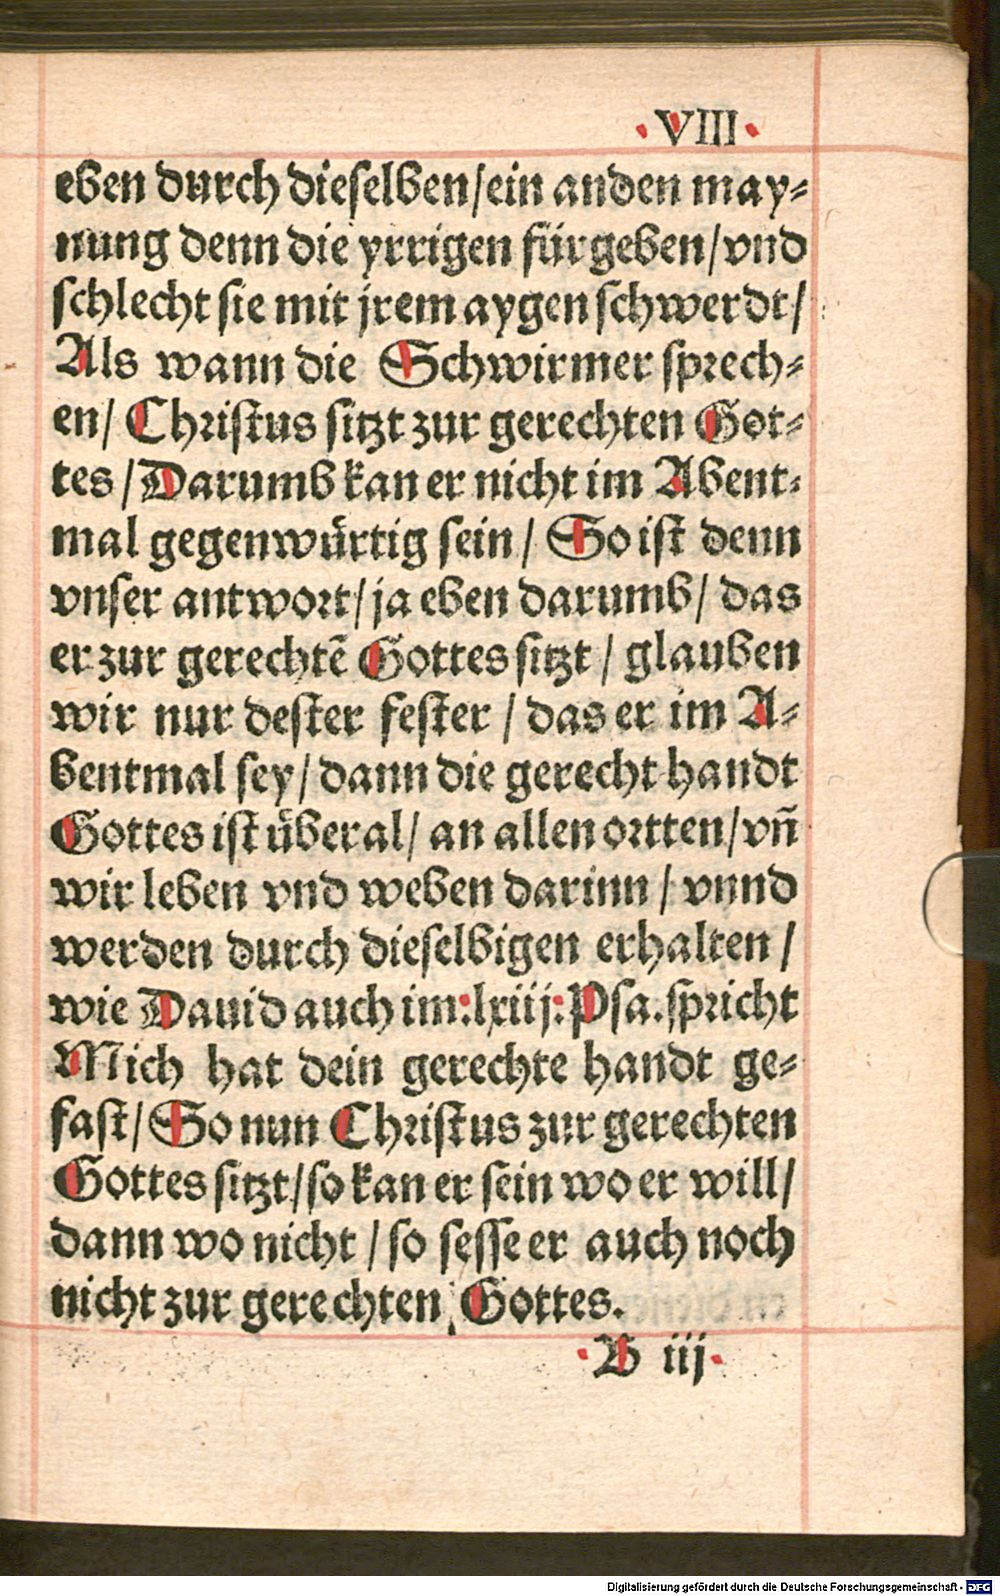 ·VIII·
eben durch dieselben/ein anden may⸗
nung denn die yrrigen fürgeben/vnd
schlecht sie mit jrem aygen schwerdt/
Als wann die Schwirmer sprech⸗
en/ Christus sitzt zur gerechten Got⸗
tes/Darumb kan er nicht im Abent⸗
mal gegenwürtig sein/ So ist denn
vnser antwort/ja eben darumb/ das
er zur gerechtē Gottes sitzt/ glauben
wir nur dester fester/ das er im A⸗
bentmal sey/dann die gerecht handt
Gottes ist überal/ an allen ortten/vñ
wir leben vnd weben darinn/ vnnd
werden durch dieselbigen erhalten/
wie Dauid auch im:lxiij:Psa.spricht
Mich hat dein gerechte handt ge⸗
fast/So nun Christus zur gerechten
Gottes sitzt/so kan er sein wo er will/
dann wo nicht/so sesse er auch noch
nicht zur gerechten Gottes.
·B iij·
Digitalisierung gefördert durch die Deutsche Forschungsgemeinschaft - DFG